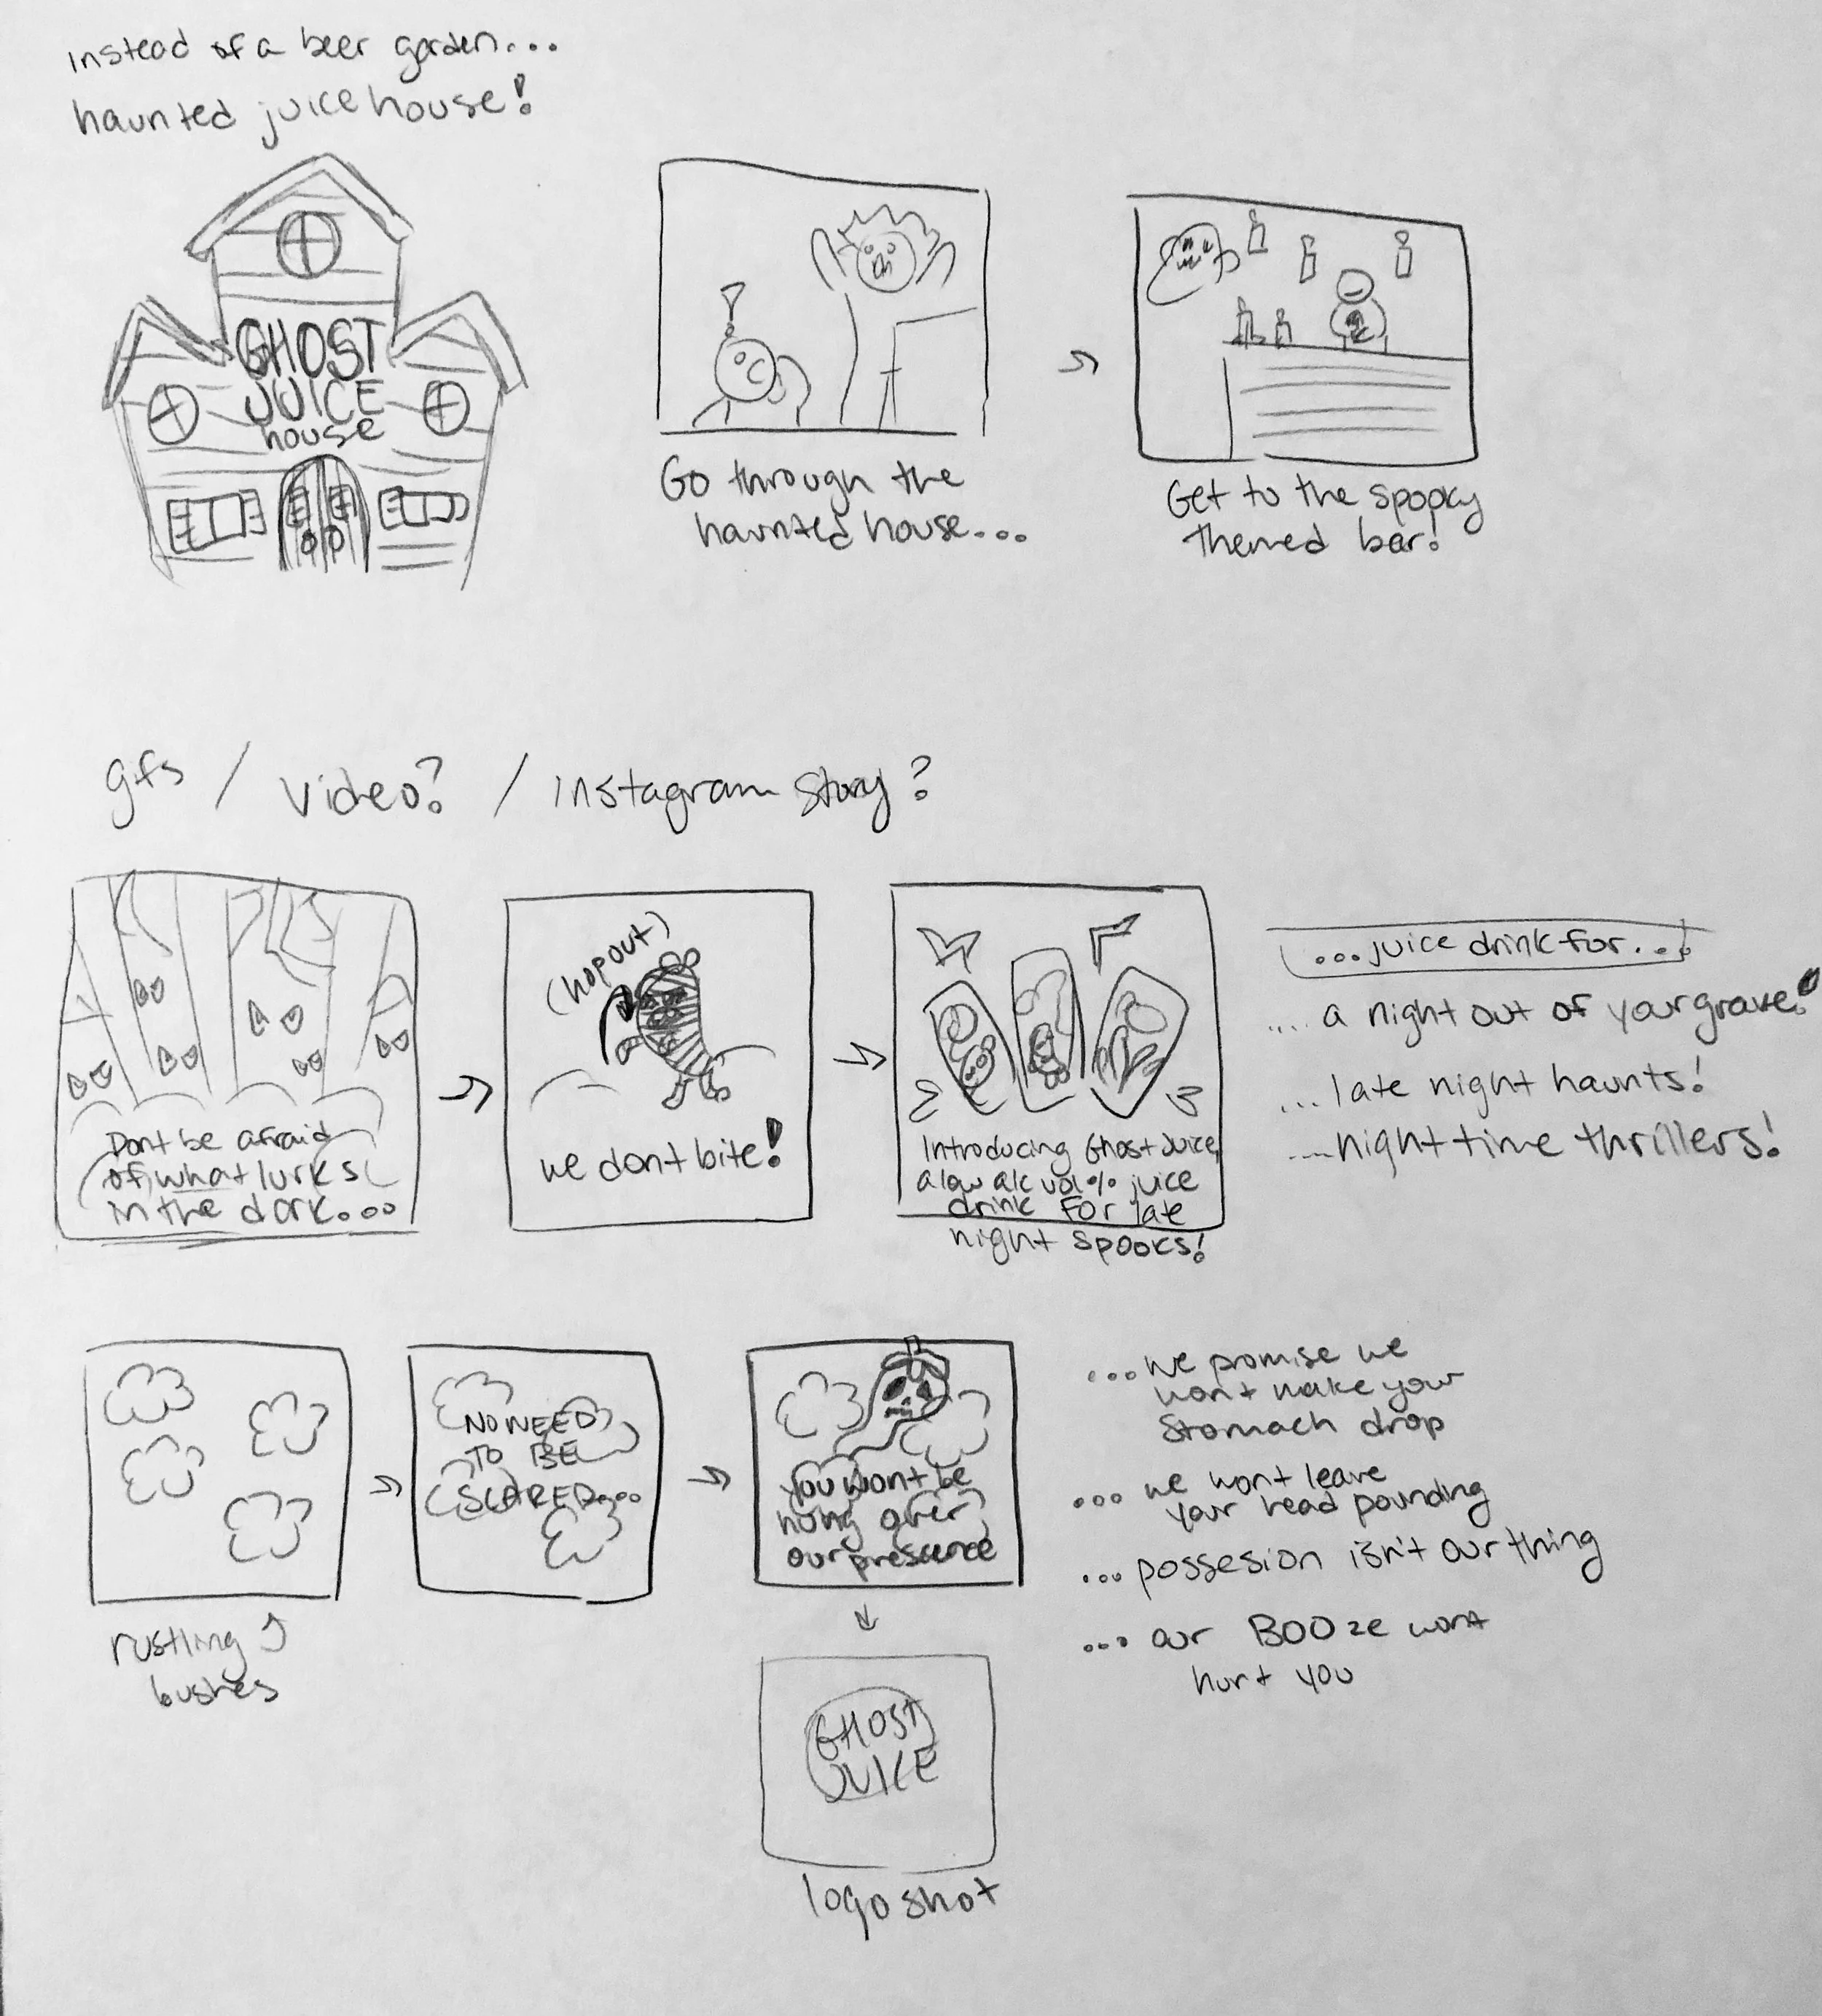 instead of a beer garden...
haunted juice house!
GHOST
JUICE
house
Go through the
haunted house...
Get to the spooky
themed bar!
gifs / video? / instagram story?
Dont be afraid
of what lurks
in the dark...
(hop out)
we dont bite!
Introducing Ghost Juice,
a low alc vol % juice
drink for late
night spooks!
...juice drink for...
.... a night out of your grave!
... late night haunts!
.... night time thrillers!
rustling
bushes
NO NEED
TO BE
SCARED...
you wont be
hung over
our prescence
...we promise we
wont make your
stomach drop
... we wont leave
your head pounding
...possesion isn't our thing
... our BOOze wont
hurt you
GHOST
JUICE
logo shot